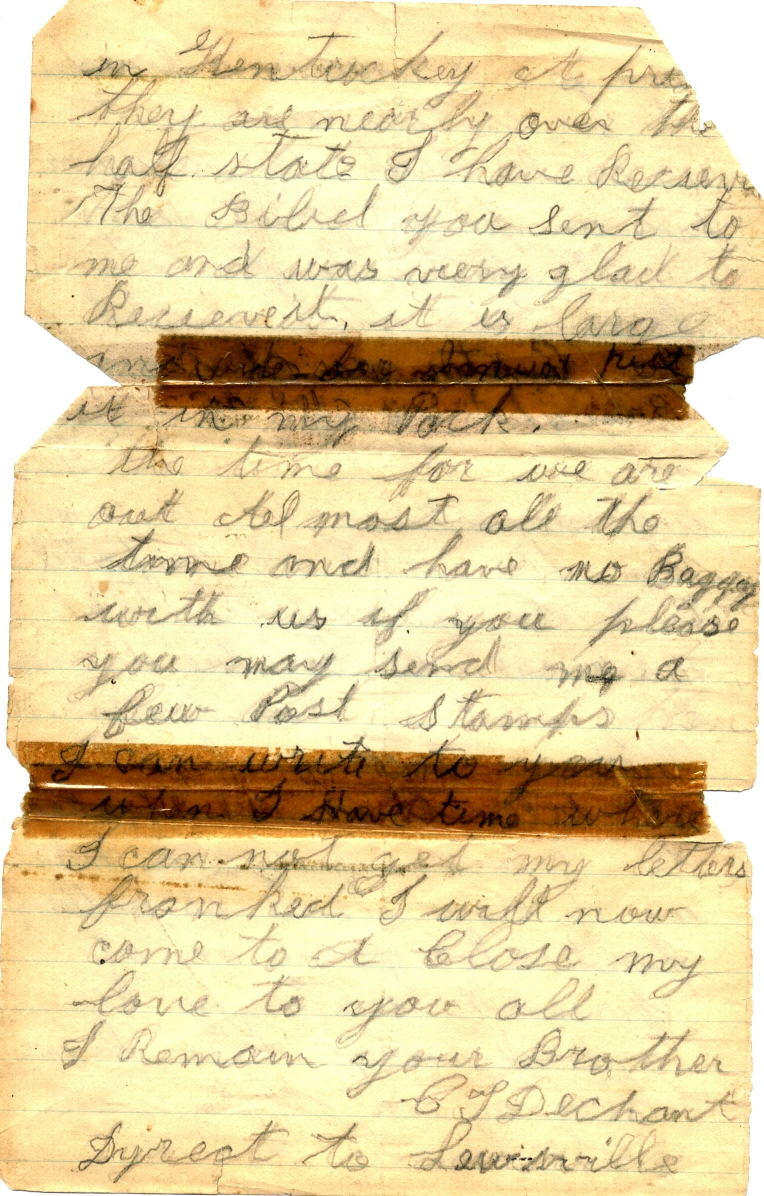 in Kentucky at pre
they are nearly over the
half state I have Receiev
The Bibel you sent to
me and was veery glad to
Receievent, it is large
and put
it in my Pock.
the time for we are
out Allmost all the
time and have no Baggag
with us if you please
you may send me a
few Post Stamps
I can write to you
when I Have time where
I can not get my letters
franked I will now
come to A Close my
love to you all
I Remain your Brother
C T Dechant
Dyrect to Lewisville